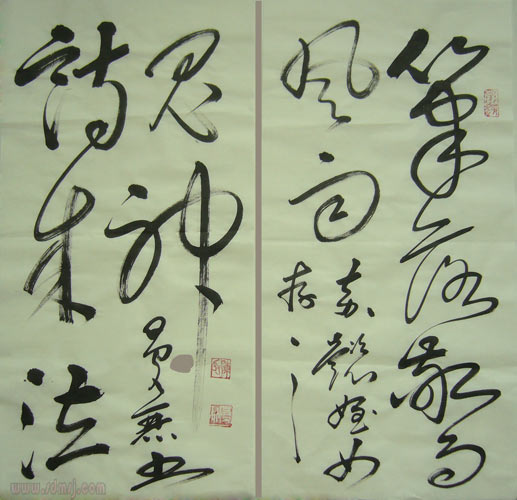 筆落驚
風雨
懿姪女
詩成泣
鬼神
www.sdmsj.com